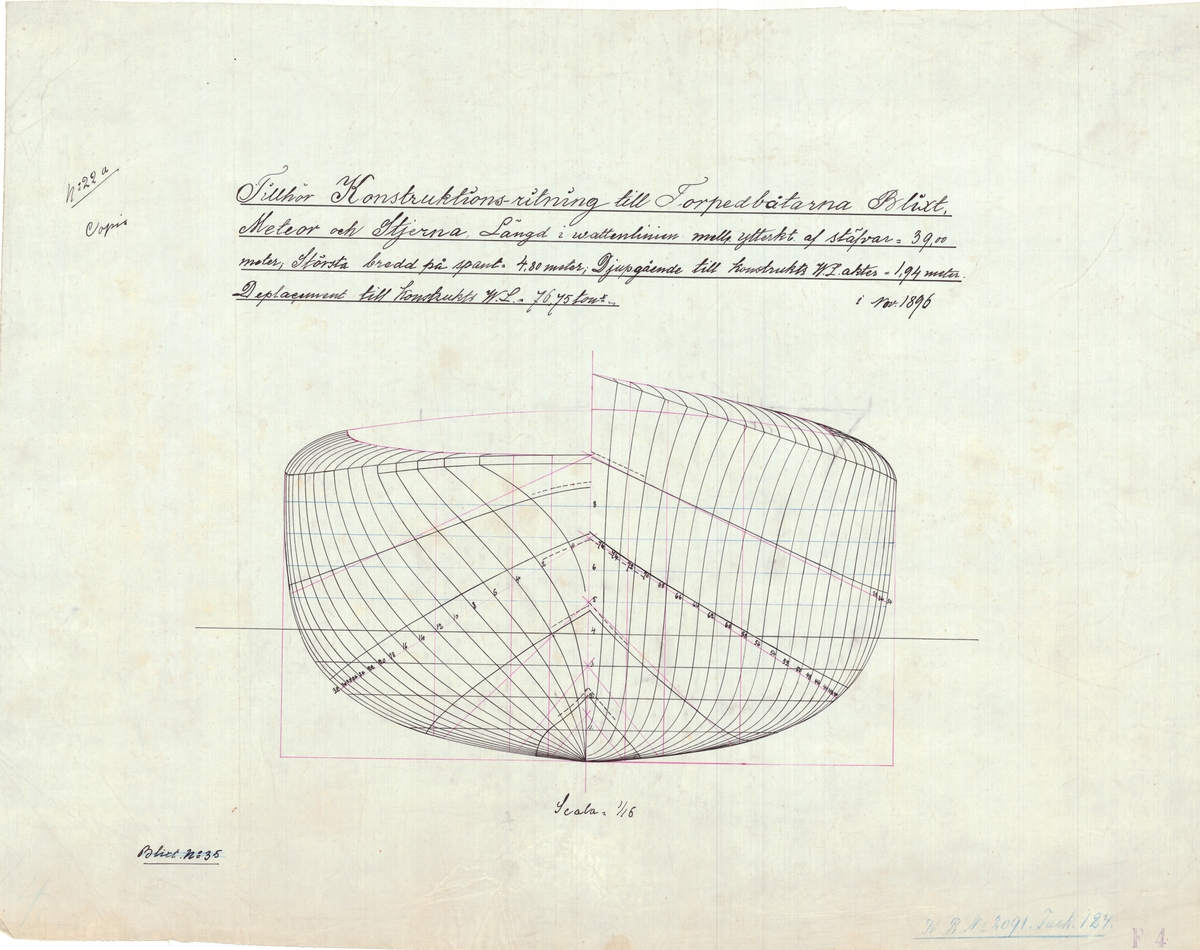 No 22 a
Copia
Tillhör Konstruktions-ritning till Torpedbåtarna Blixt,
Meteor och Stjerna, Längd i wattenlinien mellan ytterkt. af stäfvar = 39,00
meter, Största bredd på spant = 4,80 meter, Djupgående till konstrukts W.L. akter = 1,94 meter.
Deplacement till konstrukts W.L. = 76,75 tons.
i Nov. 1896
8
6
5
4
3
Scala = 1/16
Blixt No 35
K R No 2091. Fack. 124.
F 4